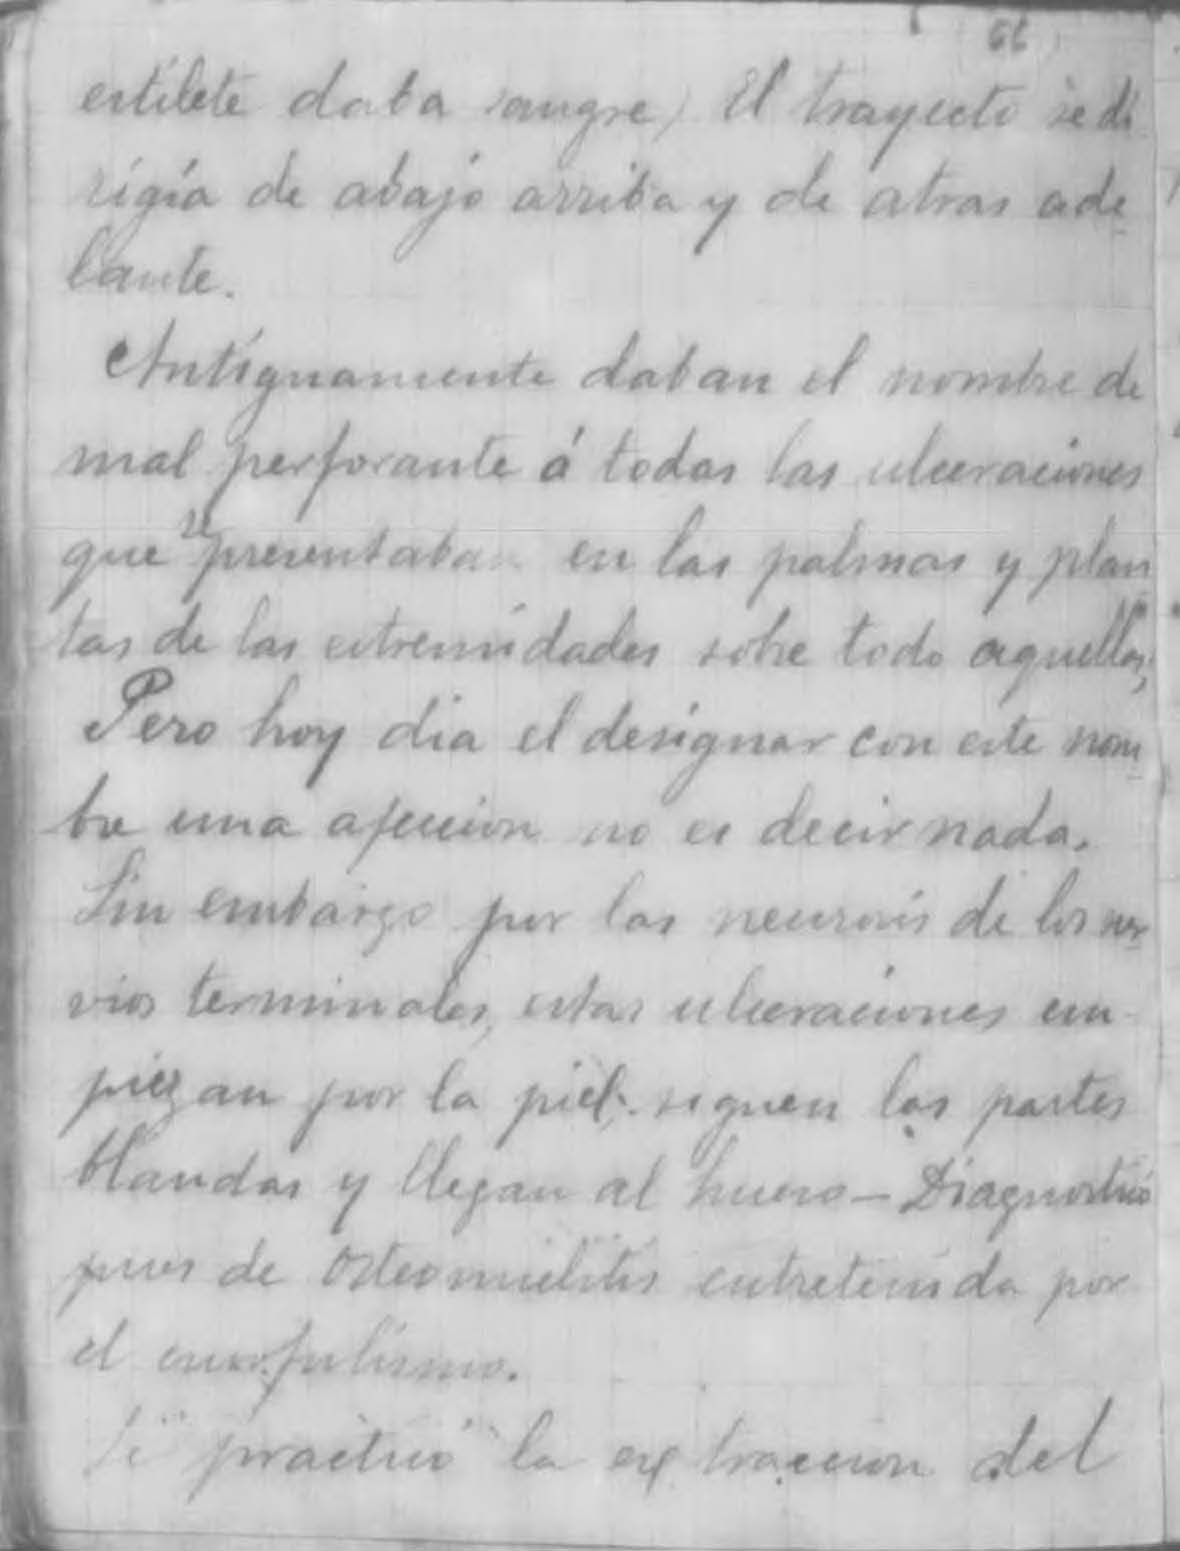 66
estilete daba sangre) El trayecto se di
rigía de abajo arriba y de atras ade
lante.
Antiguamente daban el nombre de
mal perforante á todas las ulceraciones
que se presentaban en las palmas y plan
tas de las extremidades sobre todo aquellas,
Pero hoy dia el designar con este nom
bre una afeccion no es decir nada.
Sin embargo por las neurosis de los ner
vios terminales, estas ulceraciones em-
piezan por la piel, siguen las partes
blandas y llegan al hueso — Diagnostico
pues de Osteomielitis entretenida por
el escrofulismo.
Se practicó la extraccion del